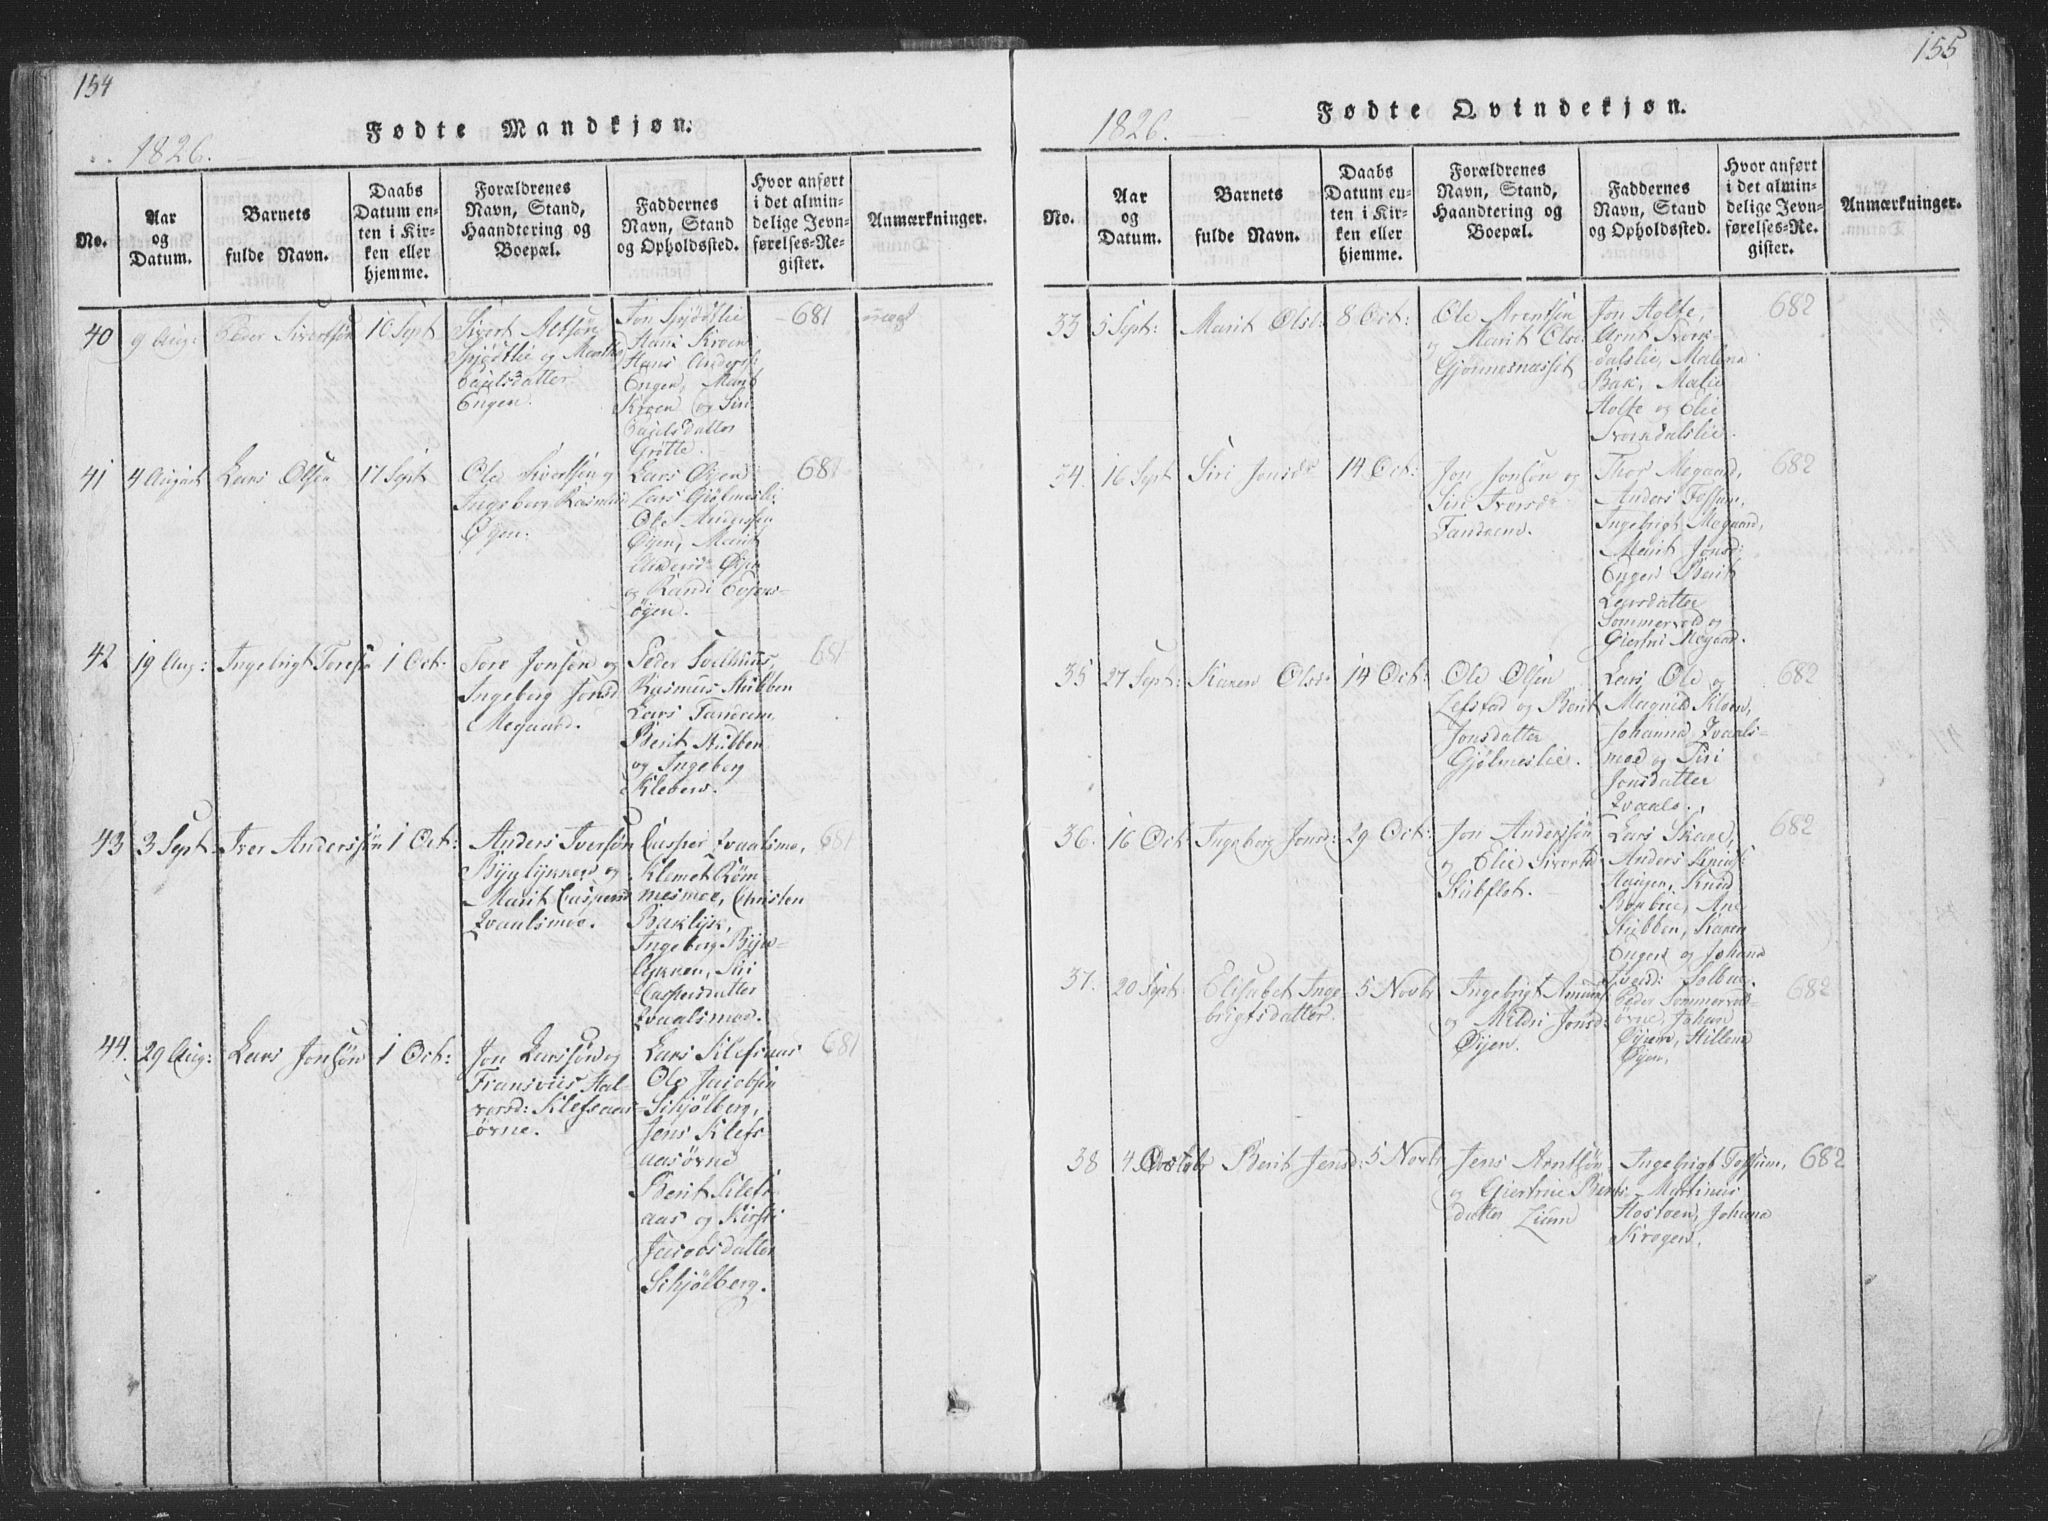 154
Fødte Mandkjøn.
1826.
No.
Aar
og
Datum.
Barnets
fulde Navn.
Daabs
Datum en-
ten i Kir-
ken eller
hjemme.
Forældrenes
Navn, Stand,
Haandtering og
Boepæl.
Faddernes
Navn, Stand
og Opholdssted.
Hvor anført
i det almin-
delige Jevn-
førelses-Re-
gister.
Anmærkninger.
40
9 Aug:
Peder Sivertsøn
10 Sept
Sivert
Spjødtlie og Marthe
Paulsdatter
Engen.
Jon Spjødtlie
Hans Kroen
Hans Anders:
Engen, Marit
Kroen og Siri
Paulsdatter
Grötte.
681
uægt
41
4 August
Lars Olsen
17 Sept
Ole Sivertsøn og
Ingeborg Rasmusd
Øyen.
Lars Øyen
Lars Gjølmesli
Ole Andersen
Øyen, Marit
Andersd: Øyen
og Randi Evjens-
øyen.
681
42
19 Aug:
Ingebrigt Toresø
1 Oct.
Tore Jonsøn og
Ingeborg Jonsd
Megaard.
Peder Solhuus,
Rasmus Stubben
Lars Tandrem,
Berit Stubben
og Ingeborg
Kleven.
681
43
3 Sept
Iver Anderssøn
1 Oct:
Anders Iversøn
Byelykken og
Marit Caspersd
Qvaalsmoe.
Casper Qvaalsmo,
Klemet Röm-
mesmoe, Christen
Baklyk,
Ingeborg Bye-
lykken, Siri
Caspersdatter
Qvaalsmoe.
681
44.
29 Aug:
Lars Jonsøn
1 Oct:
Jon Larssøn og
Fransviis Hal-
vorsd: Klefsaas-
ørne.
Lars Klefsaas
Ole Jacobsen
Schjølberg,
Jens Klefs
aasørne
Berit Klefs-
aas og Kirsti
Jacobsdatter
Schjølberg.
681
155
Fødte Qvindekjøn.
1826.
No.
Aar
og
Datum.
Barnets
fulde Navn.
Daabs
Datum en-
ten i Kir-
ken eller
hjemme.
Forældrenes
Navn, Stand,
Haandtering og
Boepæl.
Faddernes
Navn, Stand
og Opholdssted.
Hvor anført
i det almin-
delige Jevn-
førelses-Re-
gister.
Anmærkninger.
33
5 Sept:
Marit Olsd:
8 Oct:
Ole Arentsen
og Marit Olsd:
Gjønnesnæsset
Jon Holte,
Arnt Svork-
dalslie, Malena
Bak, Malie
Holte og Elie
Svorkdalslie.
682
34.
16 Sept
Siri Jonsdr
14 Oct:
Jon Jonsøn og
Siri Iversdr
Tandrem.
Thor Megaard,
Anders Fossum,
Ingebrigt Megaard,
Marit Jonsd:
Engen Berit
Larsdatter
Sommervold og
Giertru Megaard.
682
35
27 Sept:
Karen Olsdr
14 Oct:
Ole Olsen
Lefstad og Berit
Jonsdatter
Gjølmeslie.
Lars Ole og
Magnild Kloen,
Johanna Qvaals-
moe og Siri
Jonsdatter
Qvaale.
682
36.
16 Oct
Ingeborg Jonsd:
29 Oct:
Jon Anderssøn
og Elie Sivertsd
Stubflot.
Lars Skare,
Anders
Haugen, Knud
Bonbue, Ane
Stubben, Karen
Engen og Johana
Solbue.
682
37.
20 Sept:
Elisabet Inge
brigtsdatter.
5 Novbr
Ingebrigt
og Mildri Jonsd:
Øyen.
Peder Sommervold-
ørne, Johan
Øyum, Hellena
Øyen.
682
38
4 Octobr
Berit Jensd:
5 Novbr
Jens Arntsøn
og Giertrue Bents-
datter Lium
Ingebrigt Fossum,
Martinus
Hostoen, Johana
Krogen.
682